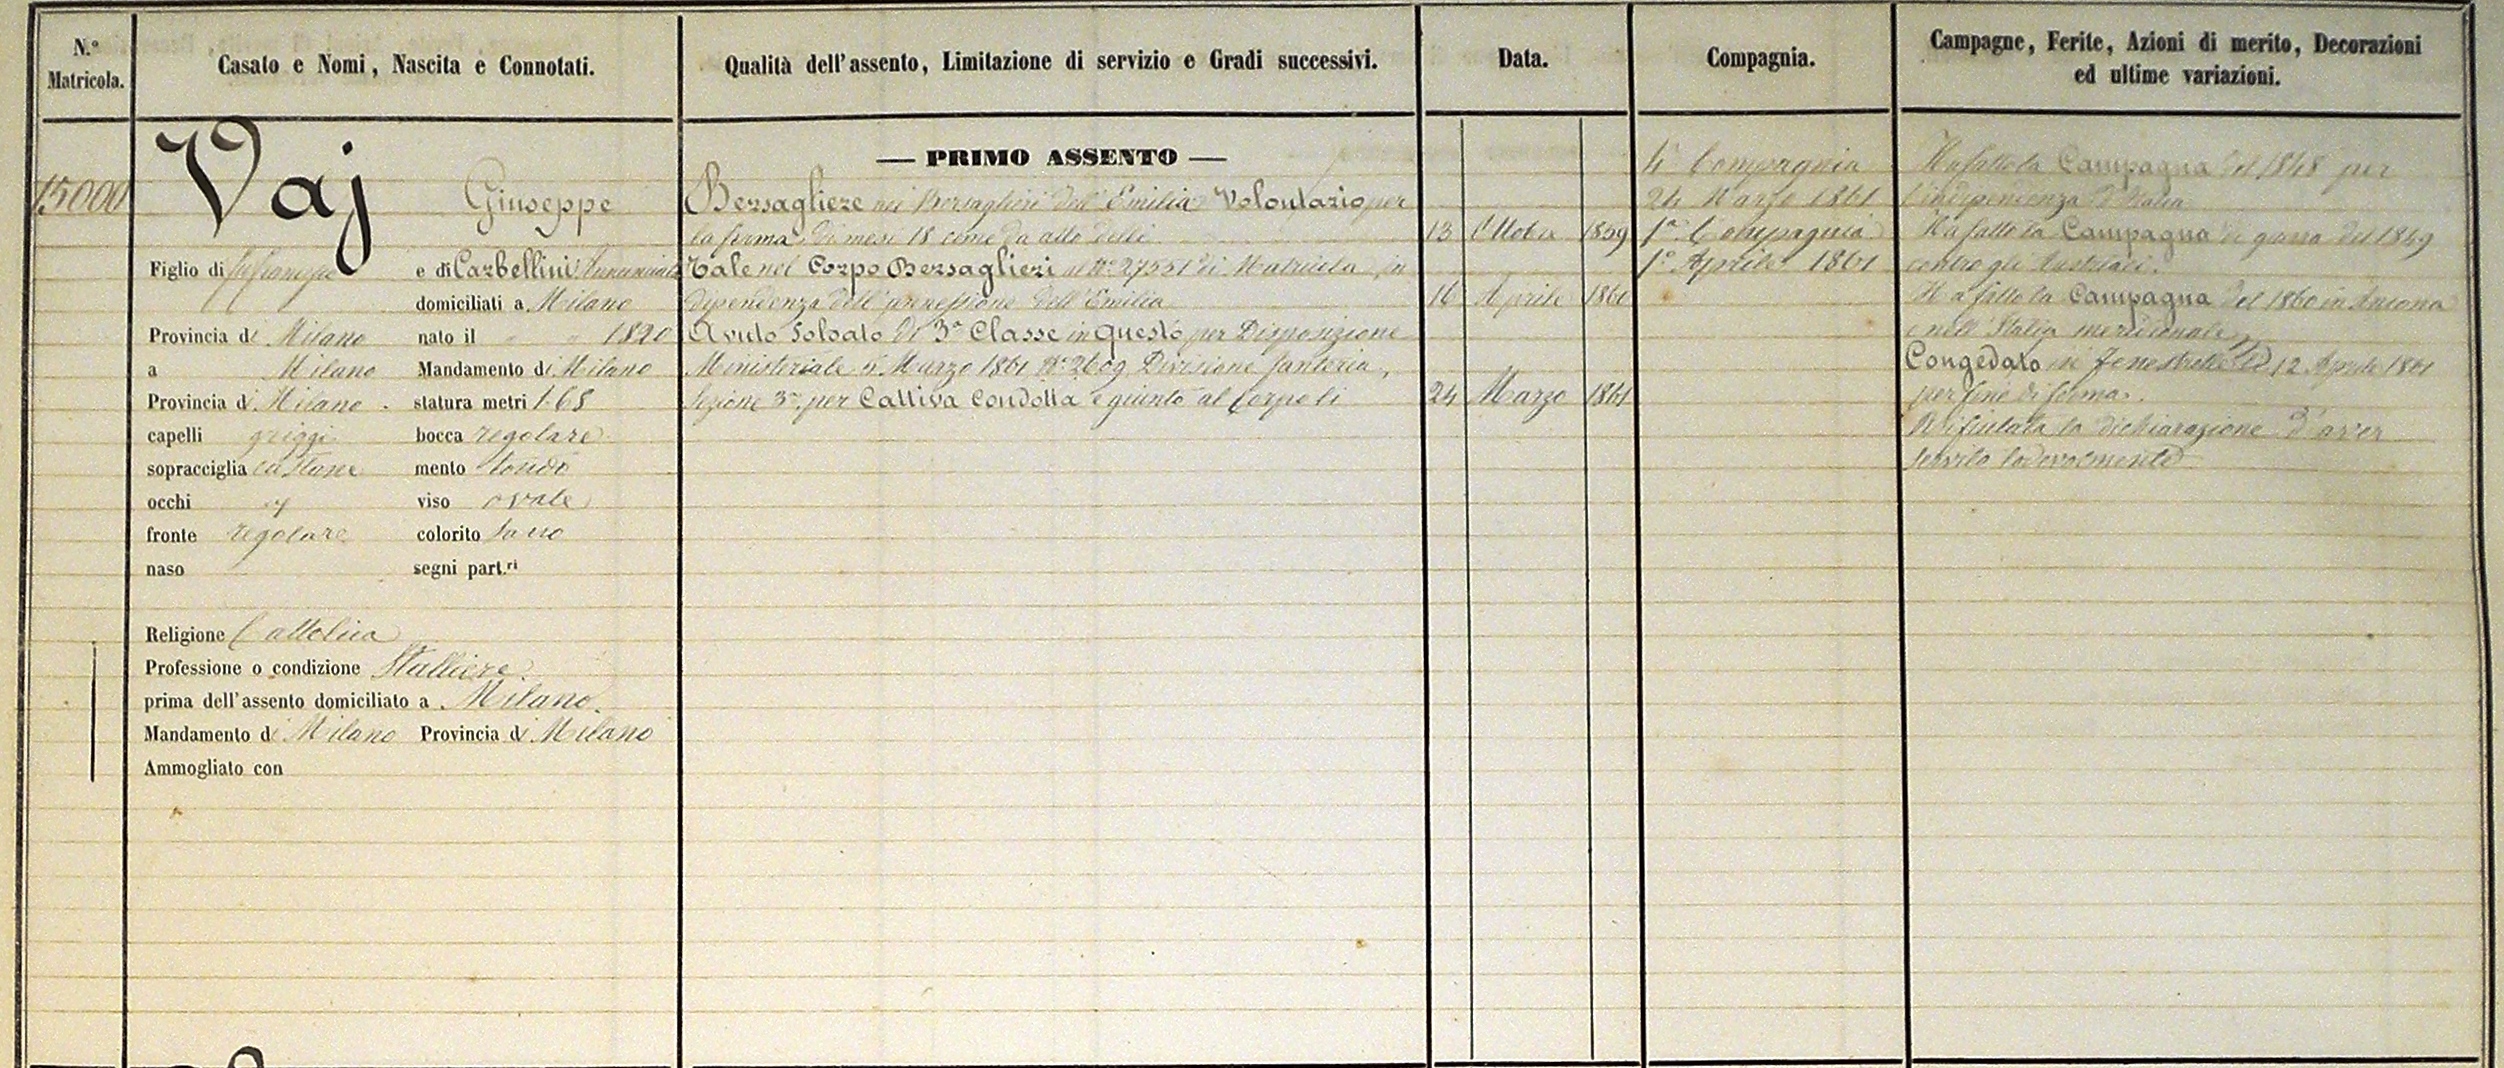 N.° Matricola.
Casato e Nomi, Nascita e Connotati.
Qualità dell'assento, Limitazione di servizio e Gradi successivi.
Data.
Compagnia.
Campagne, Ferite, Azioni di merito, Decorazioni
ed ultime variazioni.
15000
Vaj Giuseppe
Figlio di e di Carbellini Annunciata
domiciliati a Milano
Provincia di Milano nato il " " 1820
a Milano Mandamento di Milano
Provincia di Milano . statura metri 1.68
capelli griggi bocca regolare
sopracciglia castane mento tondo
occhi viso ovale
fronte regolare colorito sano
naso segni part.ri
Religione Cattolica
Professione o condizione Stalliere
prima dell'assento domiciliato a Milano.
Mandamento di Milano Provincia di Milano
Ammogliato con
— PRIMO ASSENTO —
Bersagliere nei Bersaglieri dell'Emilia Volontario per
la ferma di mesi 18 come da atto delli 13 Ottobre 1859
Tale nel Corpo Bersaglieri al N° 27551 di Matricola in
dipendenza dell'annessione dell'Emilia 16 Aprile 1860
Avuto Soldato di 3a Classe in questo per Disposizione
Ministeriale Marzo 1861 N° 2609 Divisione fanteria,
Sezione 3a per Cattiva Condotta e giunto al Corpo li 24 Marzo 1861
4a Compagnia
24 Marzo 1861
1a Compagnia
1° Aprile 1861
Ha fatto la Campagna del 1848 per
l'indipendenza d'Italia
Ha fatto la Campagna di guerra del 1859
contro gli Austriaci.
Ha fatto la Campagna del 1860 in Ancona
e nell'Italia meridionale
Congedato in Fenestrelle li 12 Aprile 1861
per fine di ferma.
Rifiutata la dichiarazione d'aver
servito lodevolmente